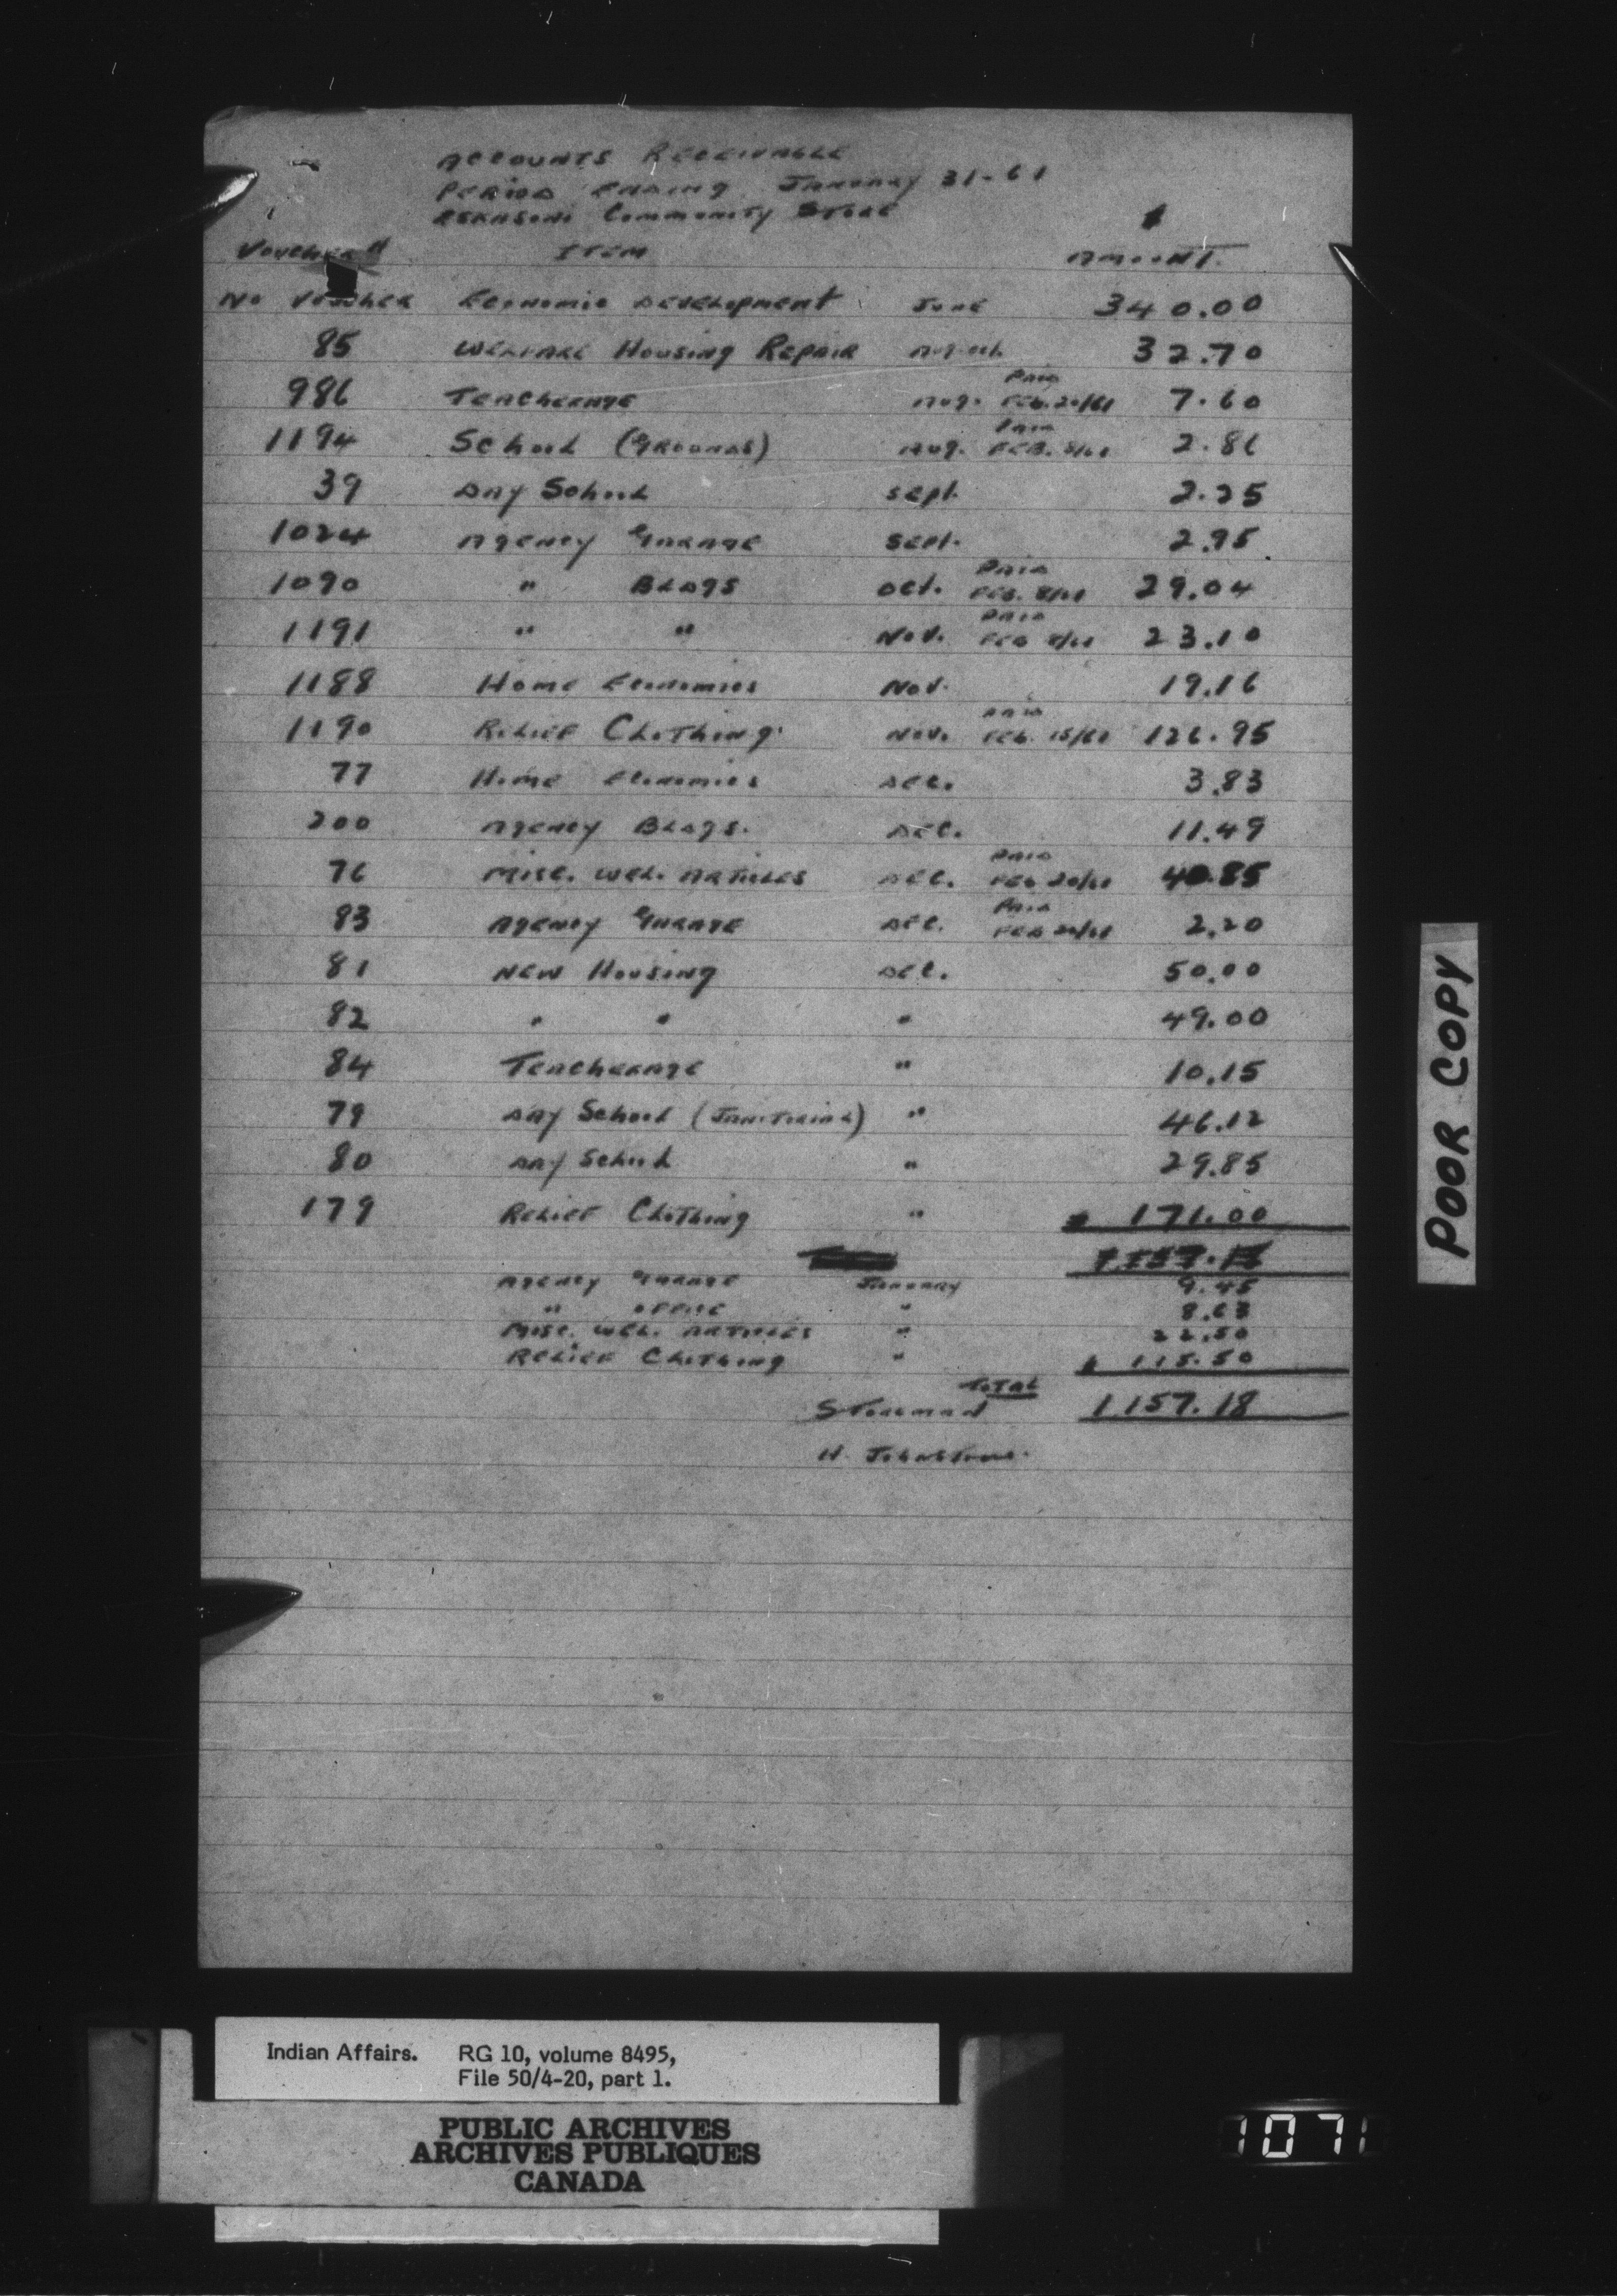 ACCOUNTS RECEIVABLE
PERIOD ENDING JANUARY 31-61
ESKASONI COMMUNITY STORE
$
VOUCHER # ITEM AMOUNT
NO VOUCHER ECONOMIC DEVELOPMENT JUNE 340.00
85 WELFARE HOUSING REPAIR 32.70
986 TEACHERAGE AUG. PAID FEB. 20/61 7.60
1194 SCHOOL (GROUNDS) AUG. PAID FEB. 8/61 2.86
39 DAY SCHOOL SEPT. 2.25
1024 AGENCY GARAGE SEPT. 2.95
1090 " BLDGS OCT. PAID FEB. 8/61 29.04
1191 " " NOV. PAID FEB 8/61 23.10
1188 HOME ECONOMICS NOV. 19.16
1190 RELIEF CLOTHING NOV. PAID FEB. 15/61 126.95
77 HOME ECONOMICS DEC. 3.83
200 AGENCY BLDGS. DEC. 11.49
76 MISC. WEL. ARTICLES DEC. PAID FEB 20/61 40.85
83 AGENCY GARAGE DEC. PAID FEB 20/61 2.20
81 NEW HOUSING DEC. 50.00
82 " " " 49.00
84 TEACHERAGE " 10.15
79 DAY SCHOOL (JANITORIAL) " 46.12
80 DAY SCHOOL " 29.85
179 RELIEF CLOTHING " $ 171.00
AGENCY GARAGE JANUARY 9.45
" OFFICE " 8.63
MISC. WEL. ARTICLES " 22.50
RELIEF CLOTHING " $ 115.50
TOTAL
STOREMAN 1157.18
H. JOHNSTONE.
POOR COPY
Indian Affairs. RG 10, volume 8495,
File 50/4-20, part 1.
PUBLIC ARCHIVES
ARCHIVES PUBLIQUES
CANADA
1071